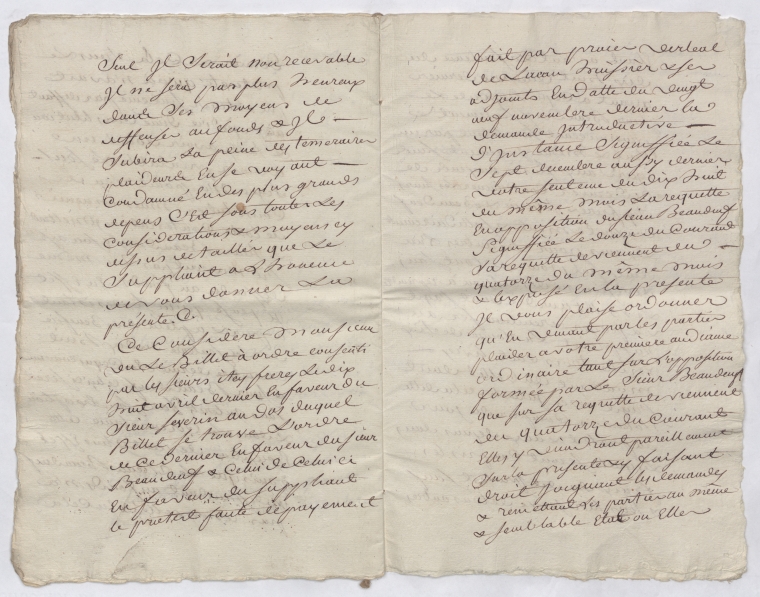 Seul Jl Serait non recevable
Jl ne Sera pas plus heureux
dans Ses moyens de
deffenses au fonds & Jl
Subira La peine des temeraires
plaideurs En Se voyant
Condamné En des plus grands
depens C'Est Sous toutes Les
considerations & moyens cy
dessus detaillés que Le
Suppliant a L'honneur
de vous donner La
présente. C.
Ce Consideré Monsieur
vu Le Billet a ordre consenti
par les sieurs freres Le dix
huit avril dernier En faveur du
sieur Severin au dos duquel
Billet Se trouve L'ordre
de Ce dernier En faveur du Sieur
Beaudeuf & Celui de Celui ci
En faveur du Suppliant
le protest faute de payement
fait par procier verbal
de Lucan huissier & ses
adjoints En datte du vingt
neuf novembre dernier la
demande Jntroductive
D'Jnstance Signiffiée Le
Sept decembre aussy dernier
votre Sentence du dix huit
du même mois La requette
En opposition du sieur Beaudeuf
Signiffiée Le douze du Courant
Sa requette de viennent du
quatorze du même mois
& l'exposé En la presente
Jl vous plaise ordonner
qu'En venant par les parties
plaider a votre premiere audiance
ordinaire tant Sur L'opposition
formée par Le Sieur Beaudeuf
que sur sa requette de viennent
du quatorze du Courant
Elles y viendront pareillement
Sur la presente & faisant
droit Joignant les demandes
& remettant les parties au même
& Semblable Etat ou Elles